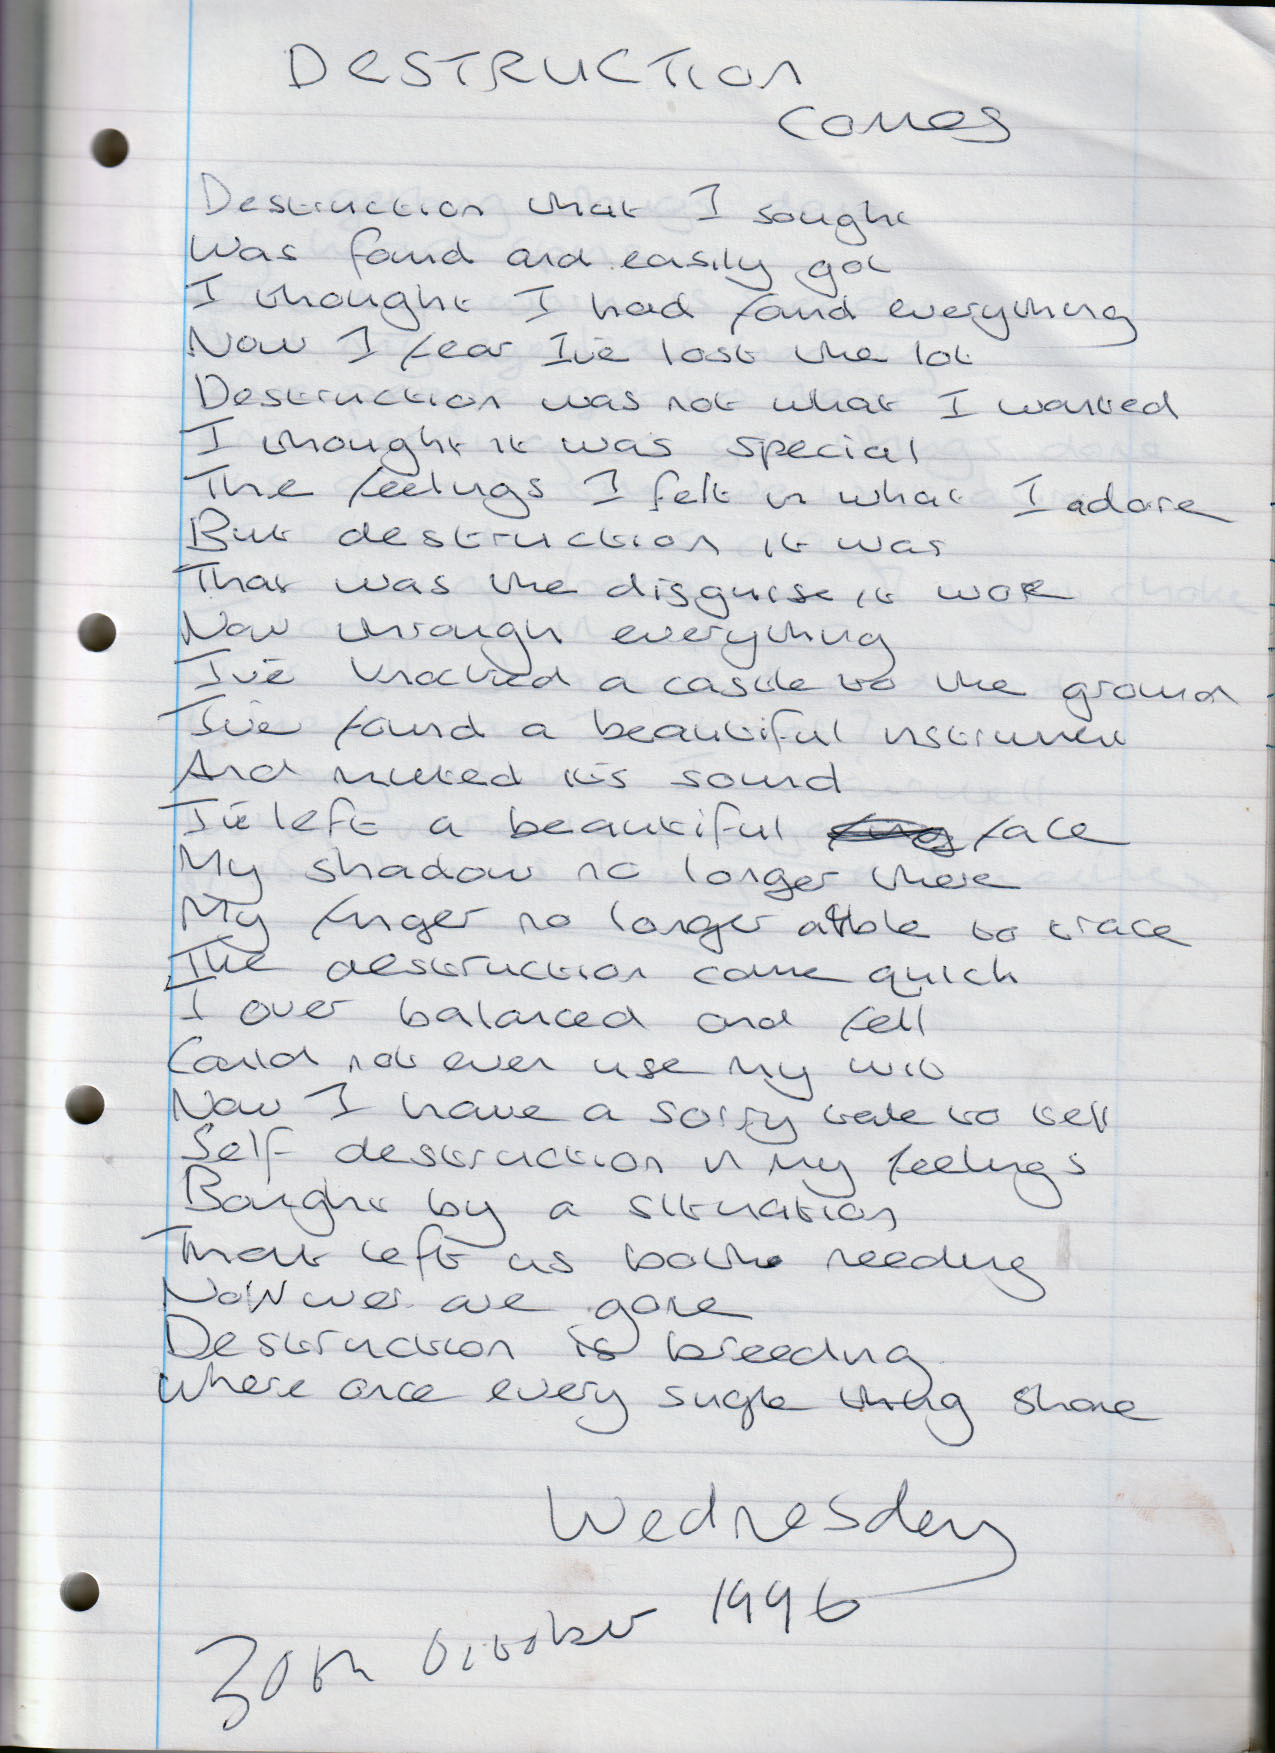 DESTRUCTION
Comes
Destruction what I sought
Was found and easily got
I thought I had found everything
Now I fear I've lost the lot
Destruction was not what I wanted
I thought it was special
The feelings I felt in what I adore
But destruction it was
That was the disguise it wore
Now through everything
I've knocked a castle to the ground
I've found a beautiful instrument
And muted its sound
I've left a beautiful face
My shadow no longer there
My finger no longer able to trace
The destruction came quick
I over balanced and fell
Could not even use my wit
Now I have a sorry tale to tell
Self destruction in my feelings
Bought by a situation
That left us both needing
Now we are gone
Destruction is breeding
Where once every single thing shone
Wednesday
30th October 1996